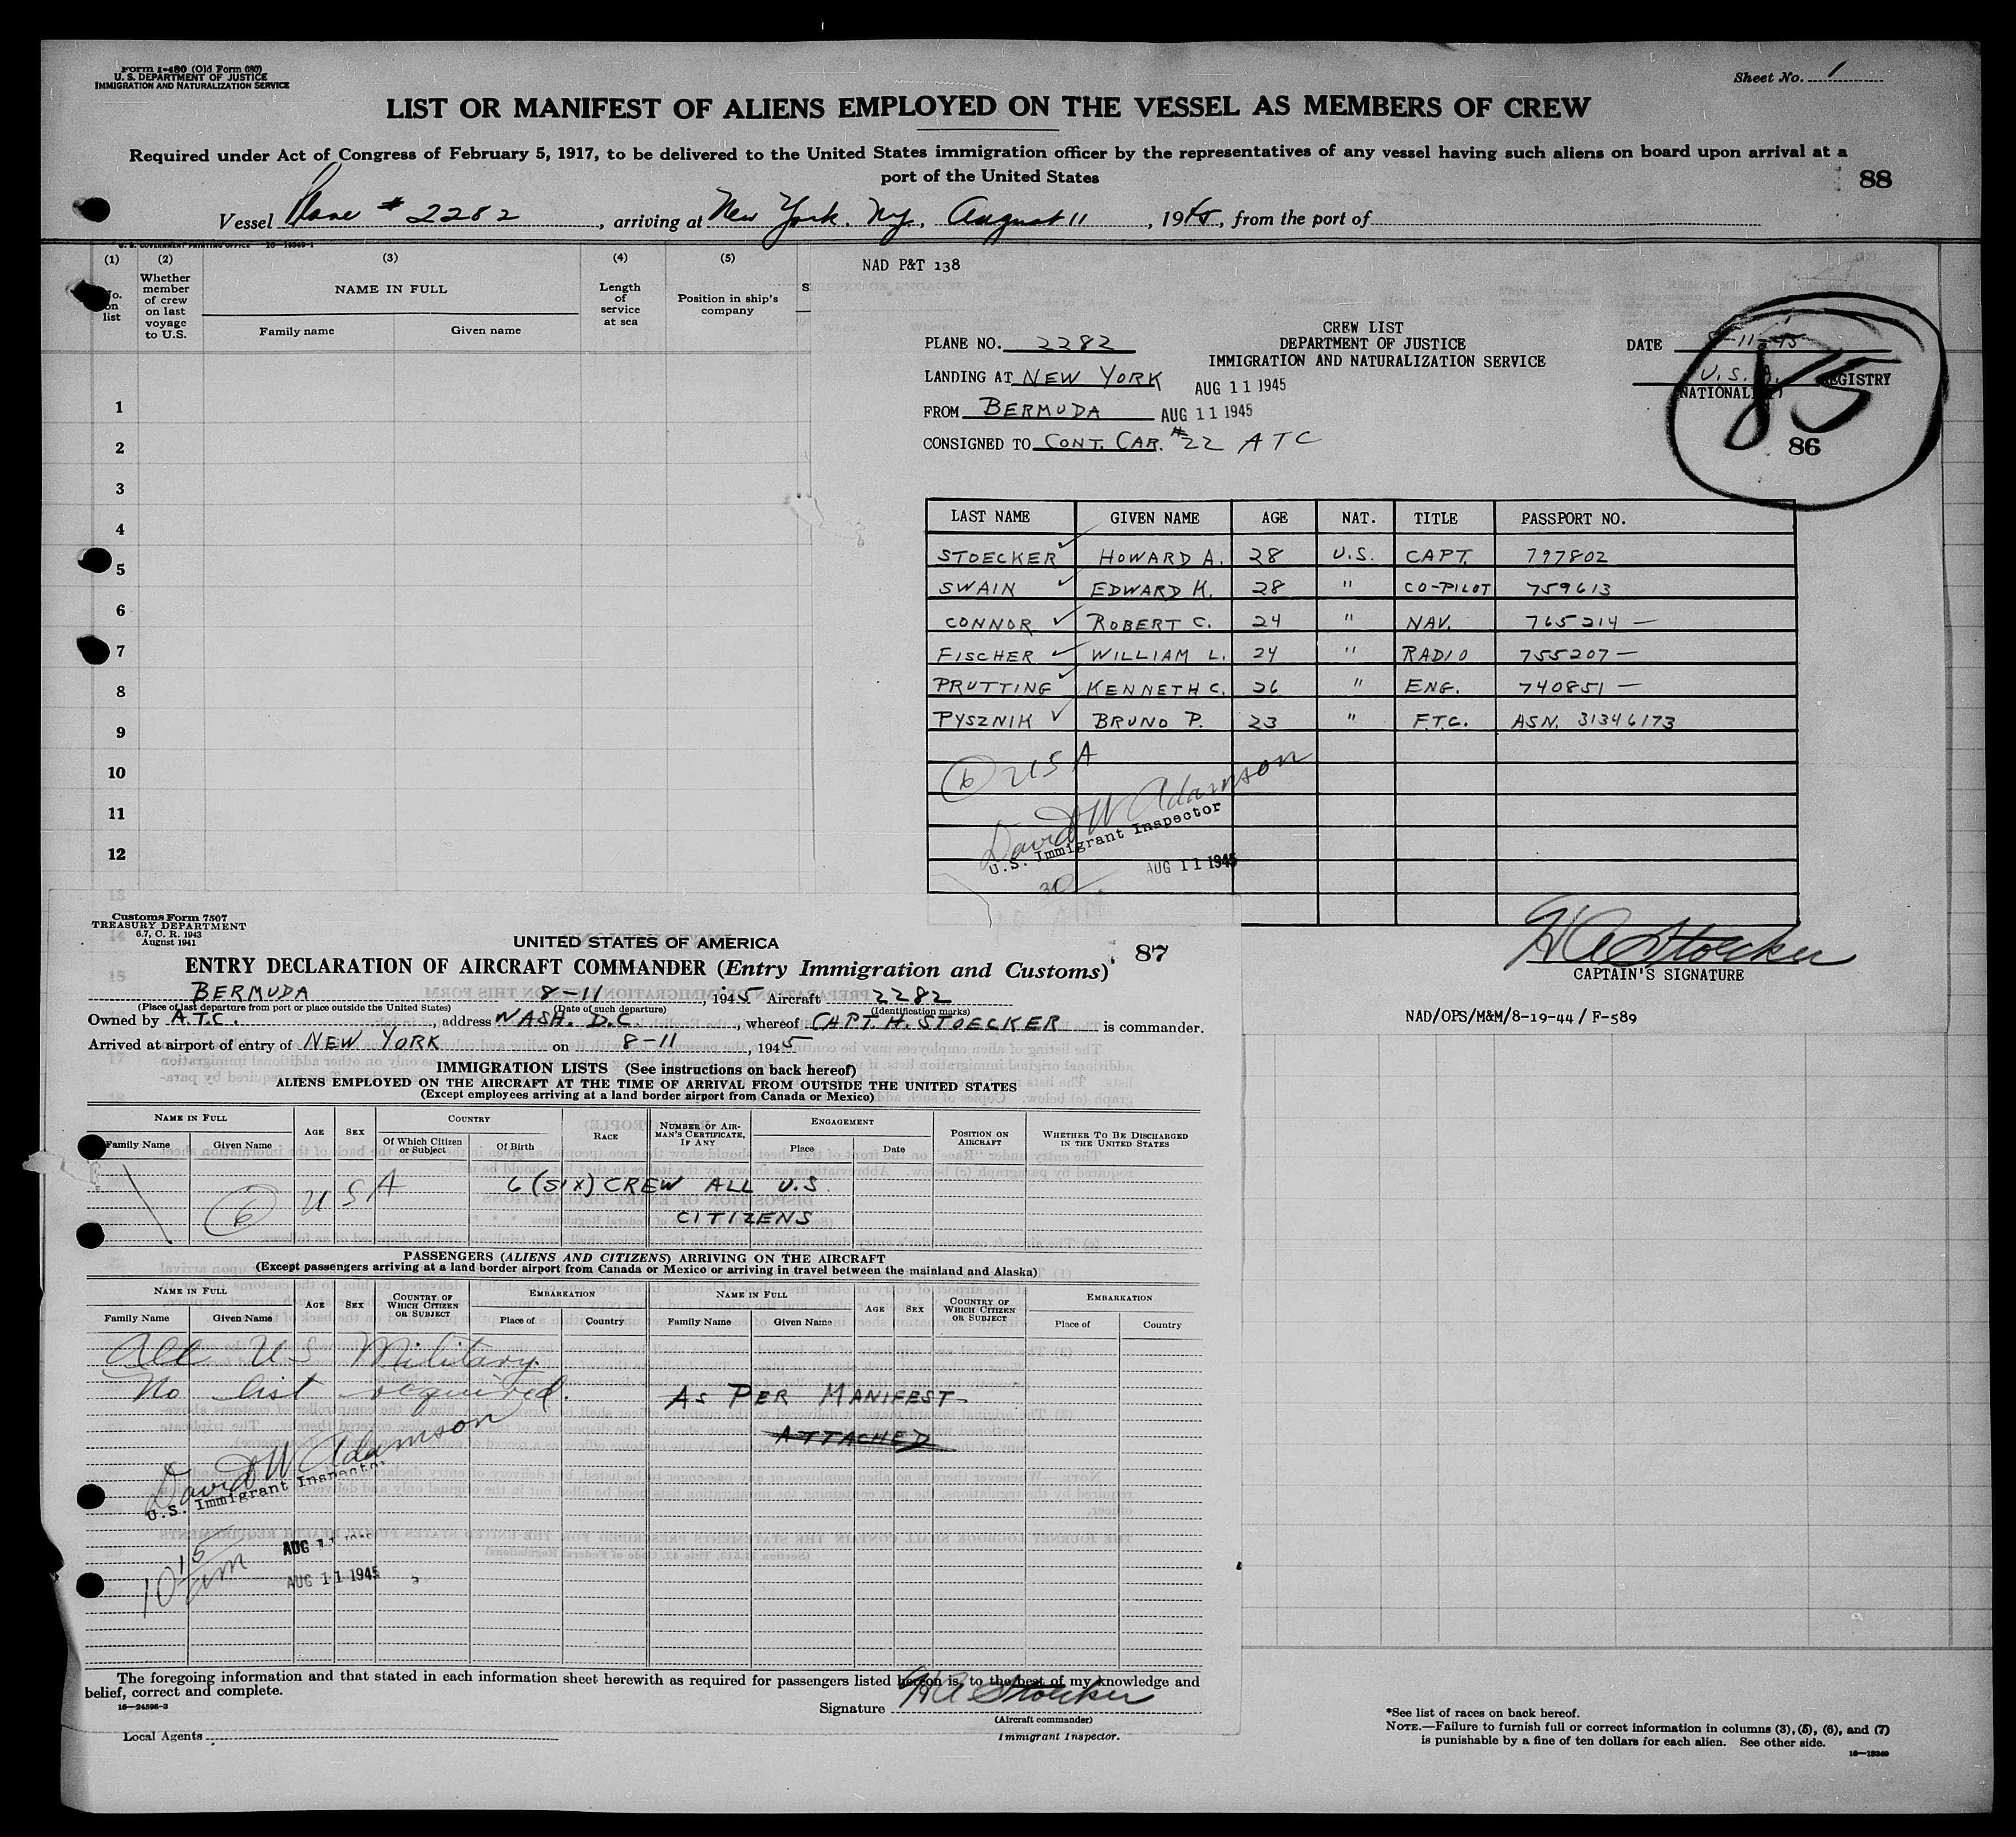 Form I-480 (Old Form 680)
U. S. DEPARTMENT OF JUSTICE
IMMIGRATION AND NATURALIZATION SERVICE
Sheet No. 1
LIST OR MANIFEST OF ALIENS EMPLOYED ON THE VESSEL AS MEMBERS OF CREW
Required under Act of Congress of February 5, 1917, to be delivered to the United States immigration officer by the representatives of any vessel having such aliens on board upon arrival at a
port of the United States
88
Vessel Plane # 2282, arriving at New York, NY, August 11, 1945, from the port of
(1) (2) (3) (4) (5)
No. on list
Whether member of crew on last voyage to U.S.
NAME IN FULL
Family name Given name
Length of service at sea
Position in ship's company
1
2
3
4
5
6
7
8
9
10
11
12
NAD P&T 138
CREW LIST
DEPARTMENT OF JUSTICE
IMMIGRATION AND NATURALIZATION SERVICE
PLANE NO. 2282
DATE 8-11-45
LANDING AT NEW YORK AUG 11 1945
U.S.A.
NATIONALITY REGISTRY
FROM BERMUDA AUG 11 1945
CONSIGNED TO CONT. CAR. #22 ATC
85
86
LAST NAME GIVEN NAME AGE NAT. TITLE PASSPORT NO.
STOECKER ✓ HOWARD A. 28 U.S. CAPT. 797802
SWAIN ✓ EDWARD K. 28 " CO-PILOT 759613
CONNOR ✓ ROBERT C. 24 " NAV. 765214 —
FISCHER ✓ WILLIAM L. 24 " RADIO 755207 —
PRUTTING ✓ KENNETH C. 26 " ENG. 740851 —
PYSZNIK ✓ BRUNO P. 23 " F.T.C. ASN. 31346173
(6) USA
David W Adamson
U.S. Immigrant Inspector
AUG 11 1945
30
H A Stoecker
CAPTAIN'S SIGNATURE
NAD/OPS/M&M/8-19-44/ F-589
Customs Form 7507
TREASURY DEPARTMENT
6.7, C. R. 1943
August 1941
UNITED STATES OF AMERICA
87
ENTRY DECLARATION OF AIRCRAFT COMMANDER (Entry Immigration and Customs)
BERMUDA 8-11, 1945 Aircraft 2282
(Place of last departure from port or place outside the United States) (Date of such departure) (Identification marks)
Owned by A.T.C., address WASH. D.C., whereof CAPT. H. STOECKER is commander.
Arrived at airport of entry of NEW YORK on 8-11, 1945
IMMIGRATION LISTS (See instructions on back hereof)
ALIENS EMPLOYED ON THE AIRCRAFT AT THE TIME OF ARRIVAL FROM OUTSIDE THE UNITED STATES
(Except employees arriving at a land border airport from Canada or Mexico)
NAME IN FULL AGE SEX COUNTRY RACE NUMBER OF AIRMAN'S CERTIFICATE, IF ANY ENGAGEMENT POSITION ON AIRCRAFT WHETHER TO BE DISCHARGED IN THE UNITED STATES
Family Name Given Name Of Which Citizen or Subject Of Birth Place Date
(6) USA 6 (SIX) CREW ALL U.S.
CITIZENS
PASSENGERS (ALIENS AND CITIZENS) ARRIVING ON THE AIRCRAFT
(Except passengers arriving at a land border airport from Canada or Mexico or arriving in travel between the mainland and Alaska)
NAME IN FULL AGE SEX COUNTRY OF WHICH CITIZEN OR SUBJECT EMBARKATION NAME IN FULL AGE SEX COUNTRY OF WHICH CITIZEN OR SUBJECT EMBARKATION
Family Name Given Name Place of Country Family Name Given Name Place of Country
All U S Military.
No list required. AS PER MANIFEST
ATTACHED
David W Adamson
U.S. Immigrant Inspector
10 15 am
AUG 11 1945
AUG 11 1945
The foregoing information and that stated in each information sheet herewith as required for passengers listed hereon is, to the best of my knowledge and
belief, correct and complete.
16—24598-3
Signature H A Stoecker
(Aircraft commander)
Local Agents
Immigrant Inspector.
*See list of races on back hereof.
NOTE.—Failure to furnish full or correct information in columns (3), (5), (6), and (7)
is punishable by a fine of ten dollars for each alien. See other side.